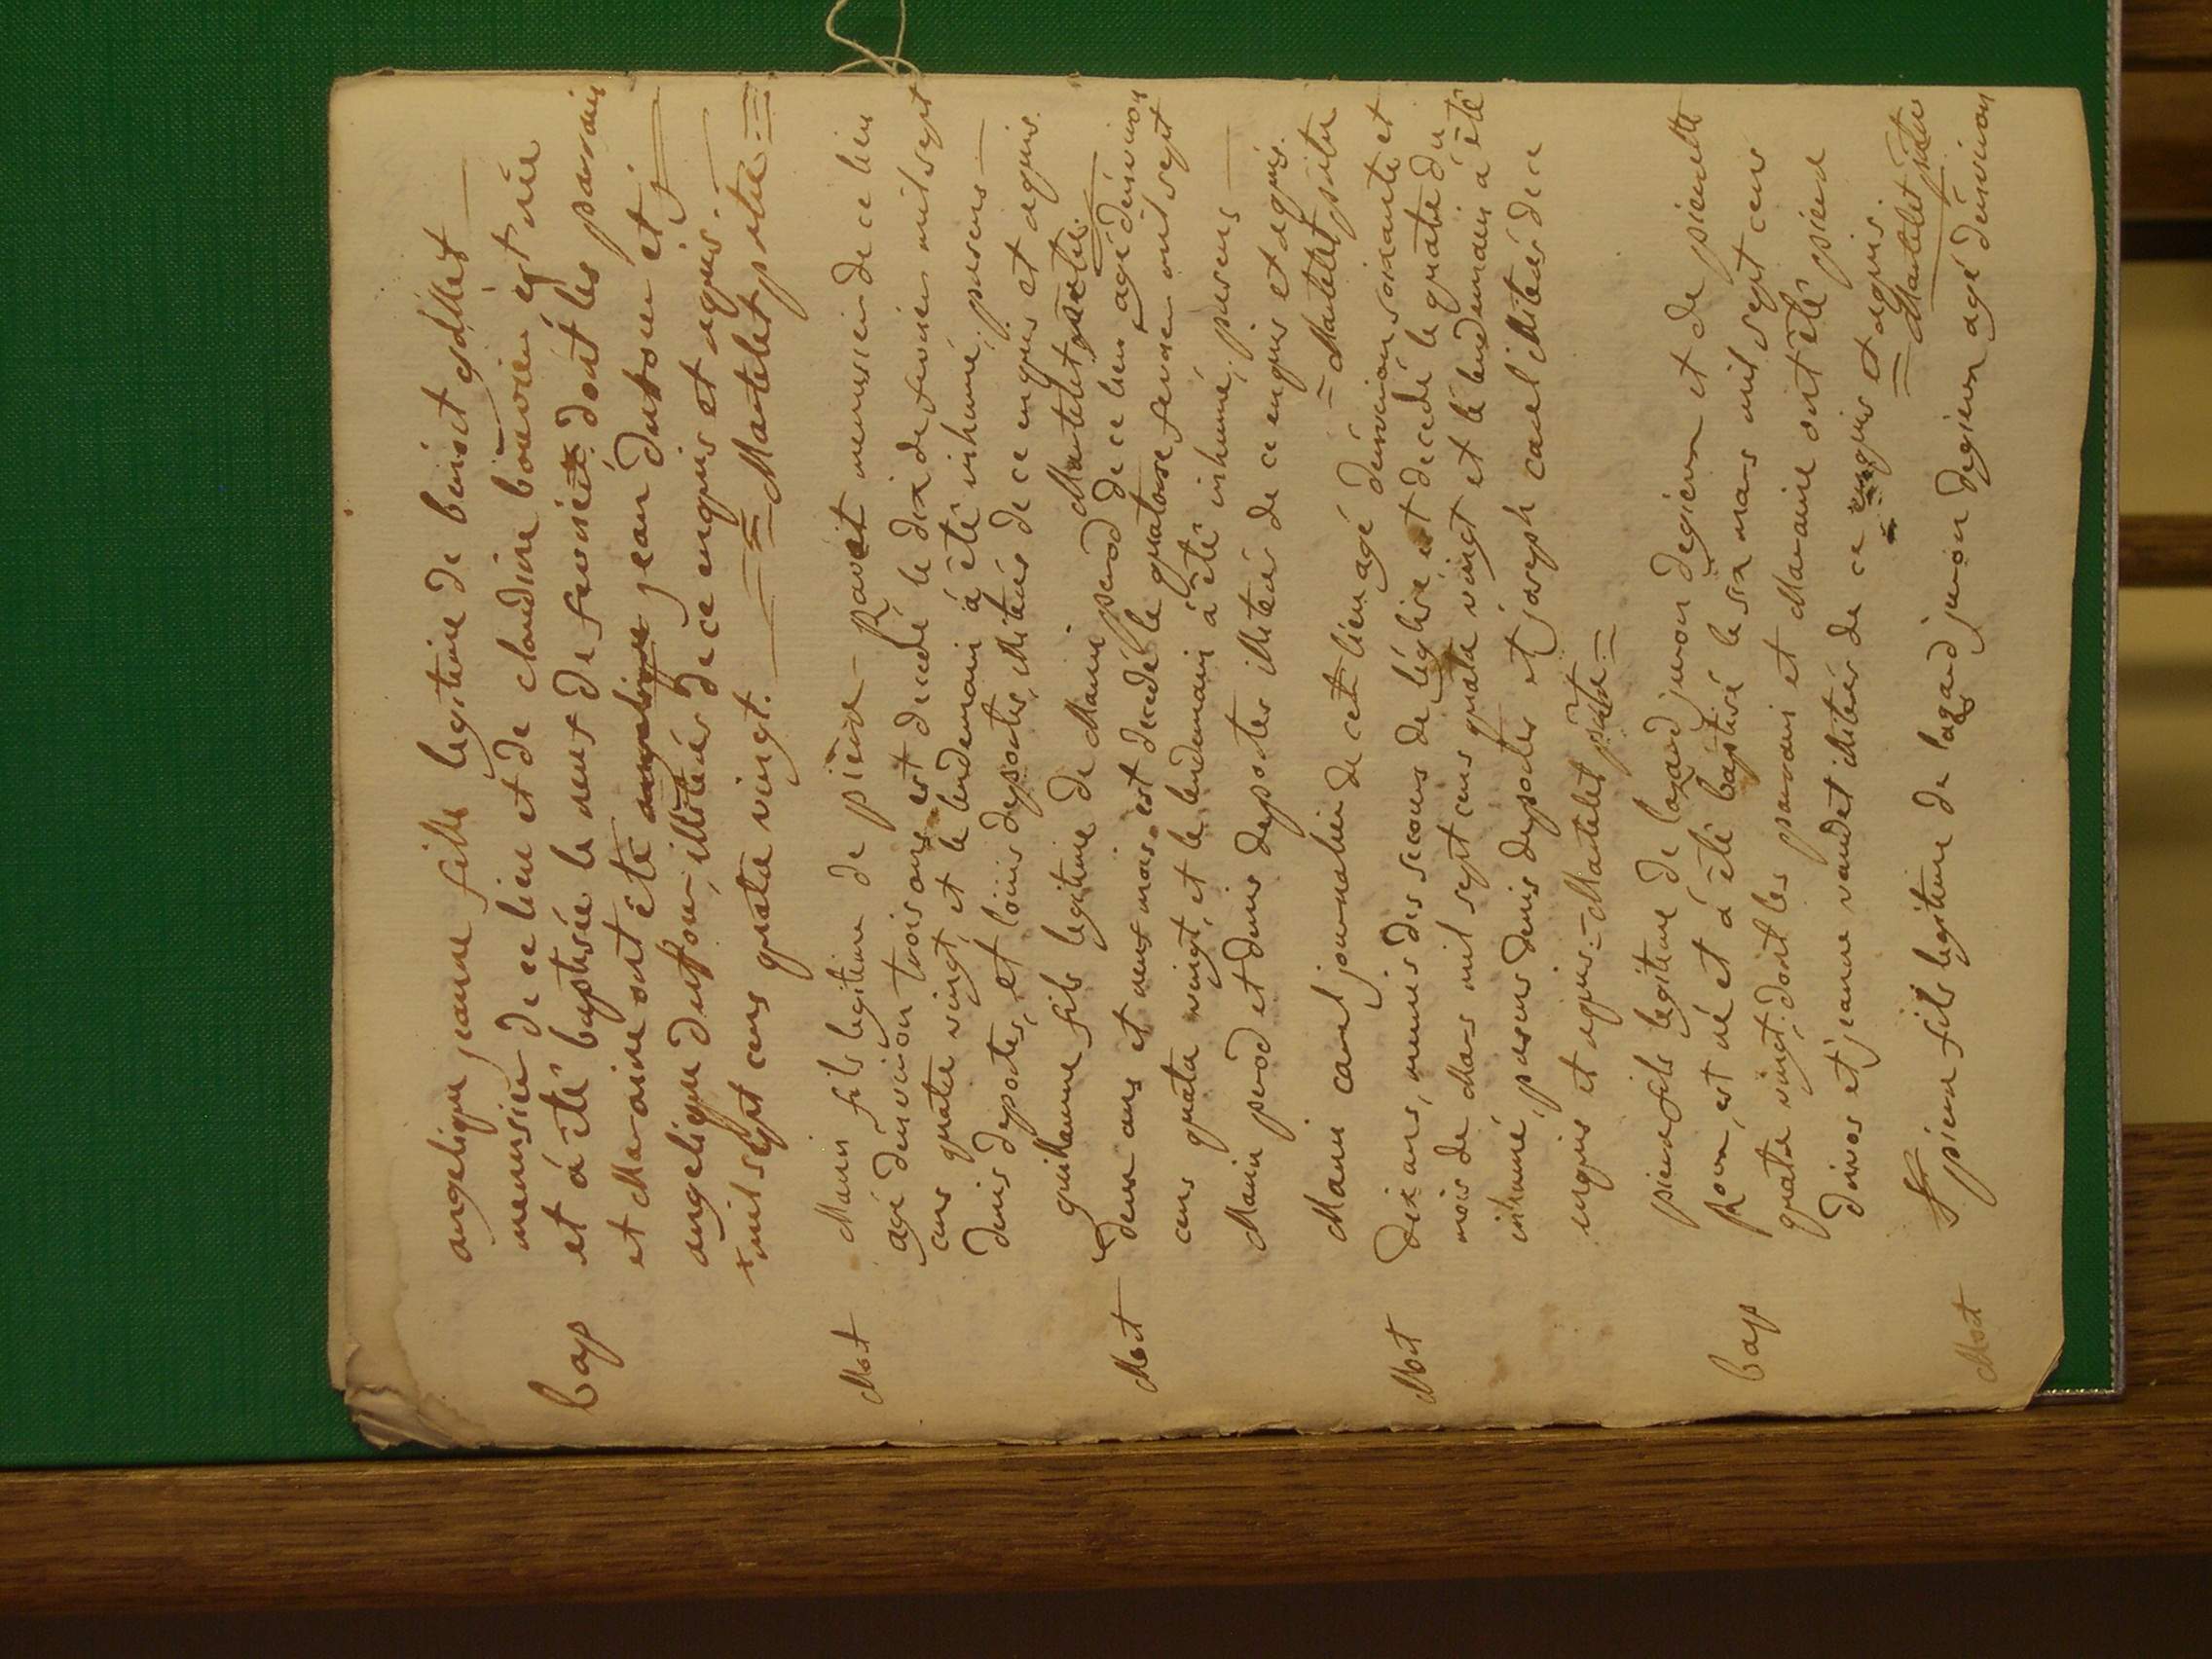 angelique jeanne fille legitime de benoit
menusier de ce lieu et de claudine bouvier est née
bap et à été baptisée le neuf de fevrier dont les parrain
et Maraine ont été angelique jean dufour et
angelique dufour, illiterés de ce enquis et requis.
mil sept cens quatre vingt. Martelet ptre
Marin fils legitime de pierre Ravet menusier de ce lieu
Mort agé d'environ trois ans est decedé le dix de fevrier mil sept
cens quatre vingt, et le lendemain à été inhumé, presens
denis desportes, et loüis desportes, illiterés de ce enquis et requis.
guillaume fils legitime de Marin perod Martelet ptre
Mort deux ans et neuf mois est decedé le quatorse fevrier mil sept
de ce lieu, agé d'environ
cens quatre vingt, et le lendemain à été inhumé, presens
Marin perod et denis desportes illiteré de ce enquis et requis.
Martelet ptre
Marin carel journalier de cet lieu agé d'environ soixante et
Mort dix ans, munis des secours de l'eglise, est decedé le quatre du
mois de Mars mil sept cens quatre vingt et le lendemain à été
inhumé, presens denis desportes et joseph carel illiterés de ce
enquis et requis Martelet ptre
pierre fils legitime de lazard junon degieux et de pierrette
est né et à été baptisé le six mars mil sept cens
bap quatre vingt, dont les parrain et Maraine ont été pierre
et jeanne vaudet illiterés de ce enquis et requis.
Martelet ptre
Mort pierre fils legitime de lazard junon degieux agé d'environ